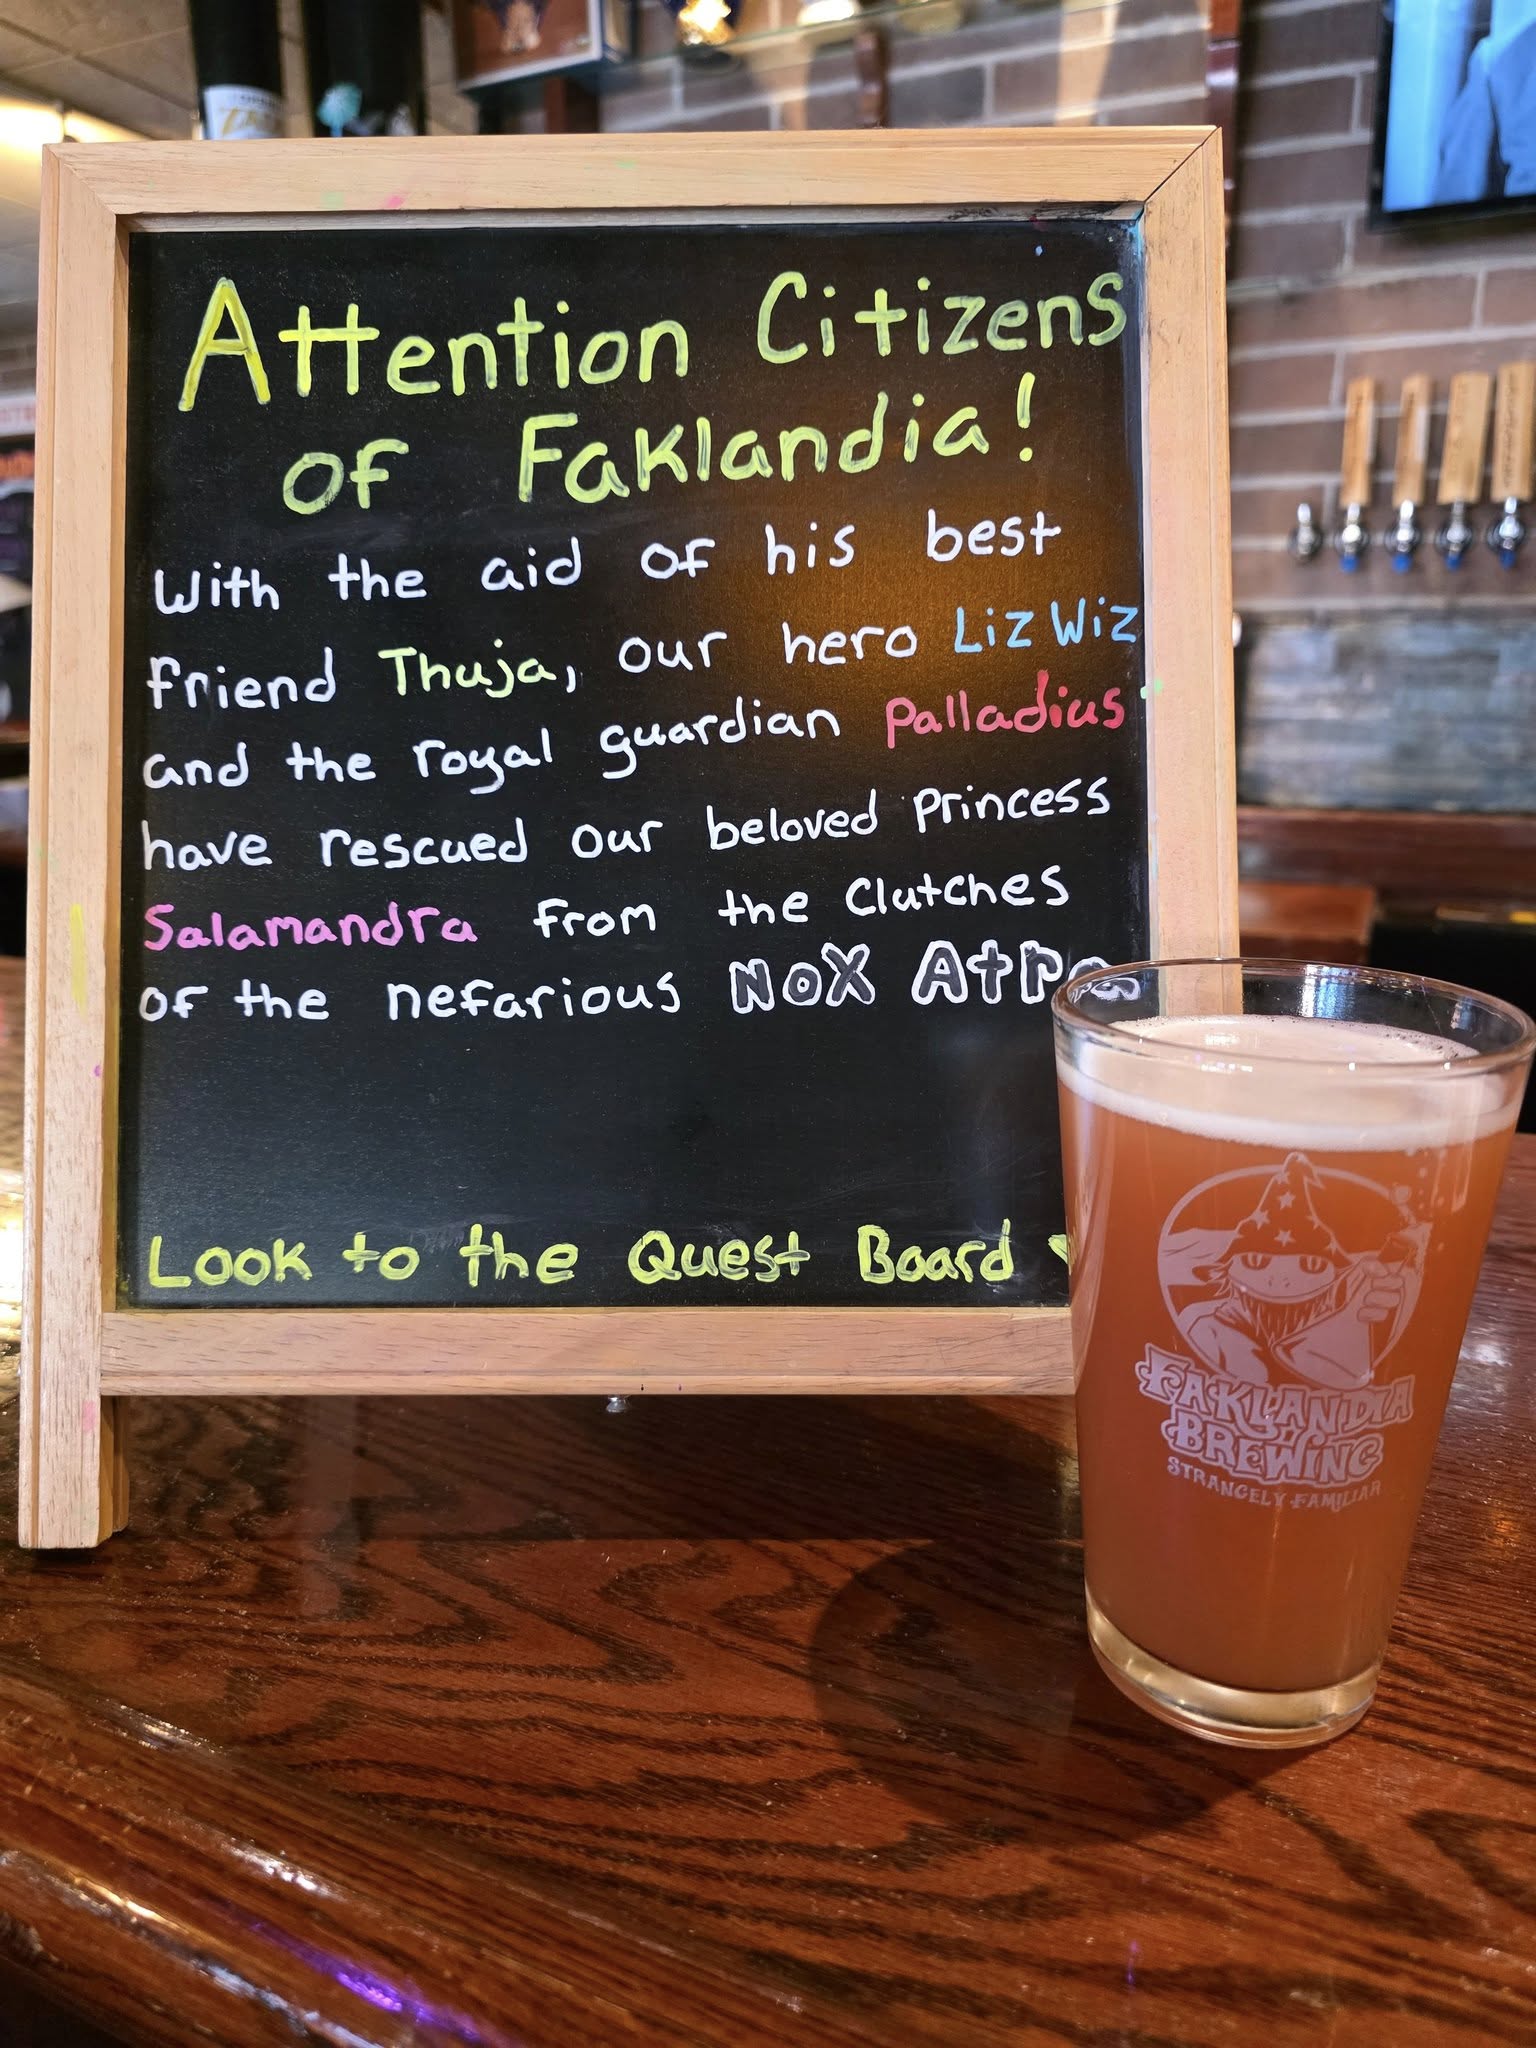 Attention Citizens
of Faklandia!
With the aid of his best
friend Thuja, our hero Liz Wiz
and the royal guardian Palladius
have rescued our beloved Princess
Salamandra from the clutches
of the nefarious NOX Atra
Look to the Quest Board
FAKLANDIA
BREWING
STRANGELY FAMILIAR